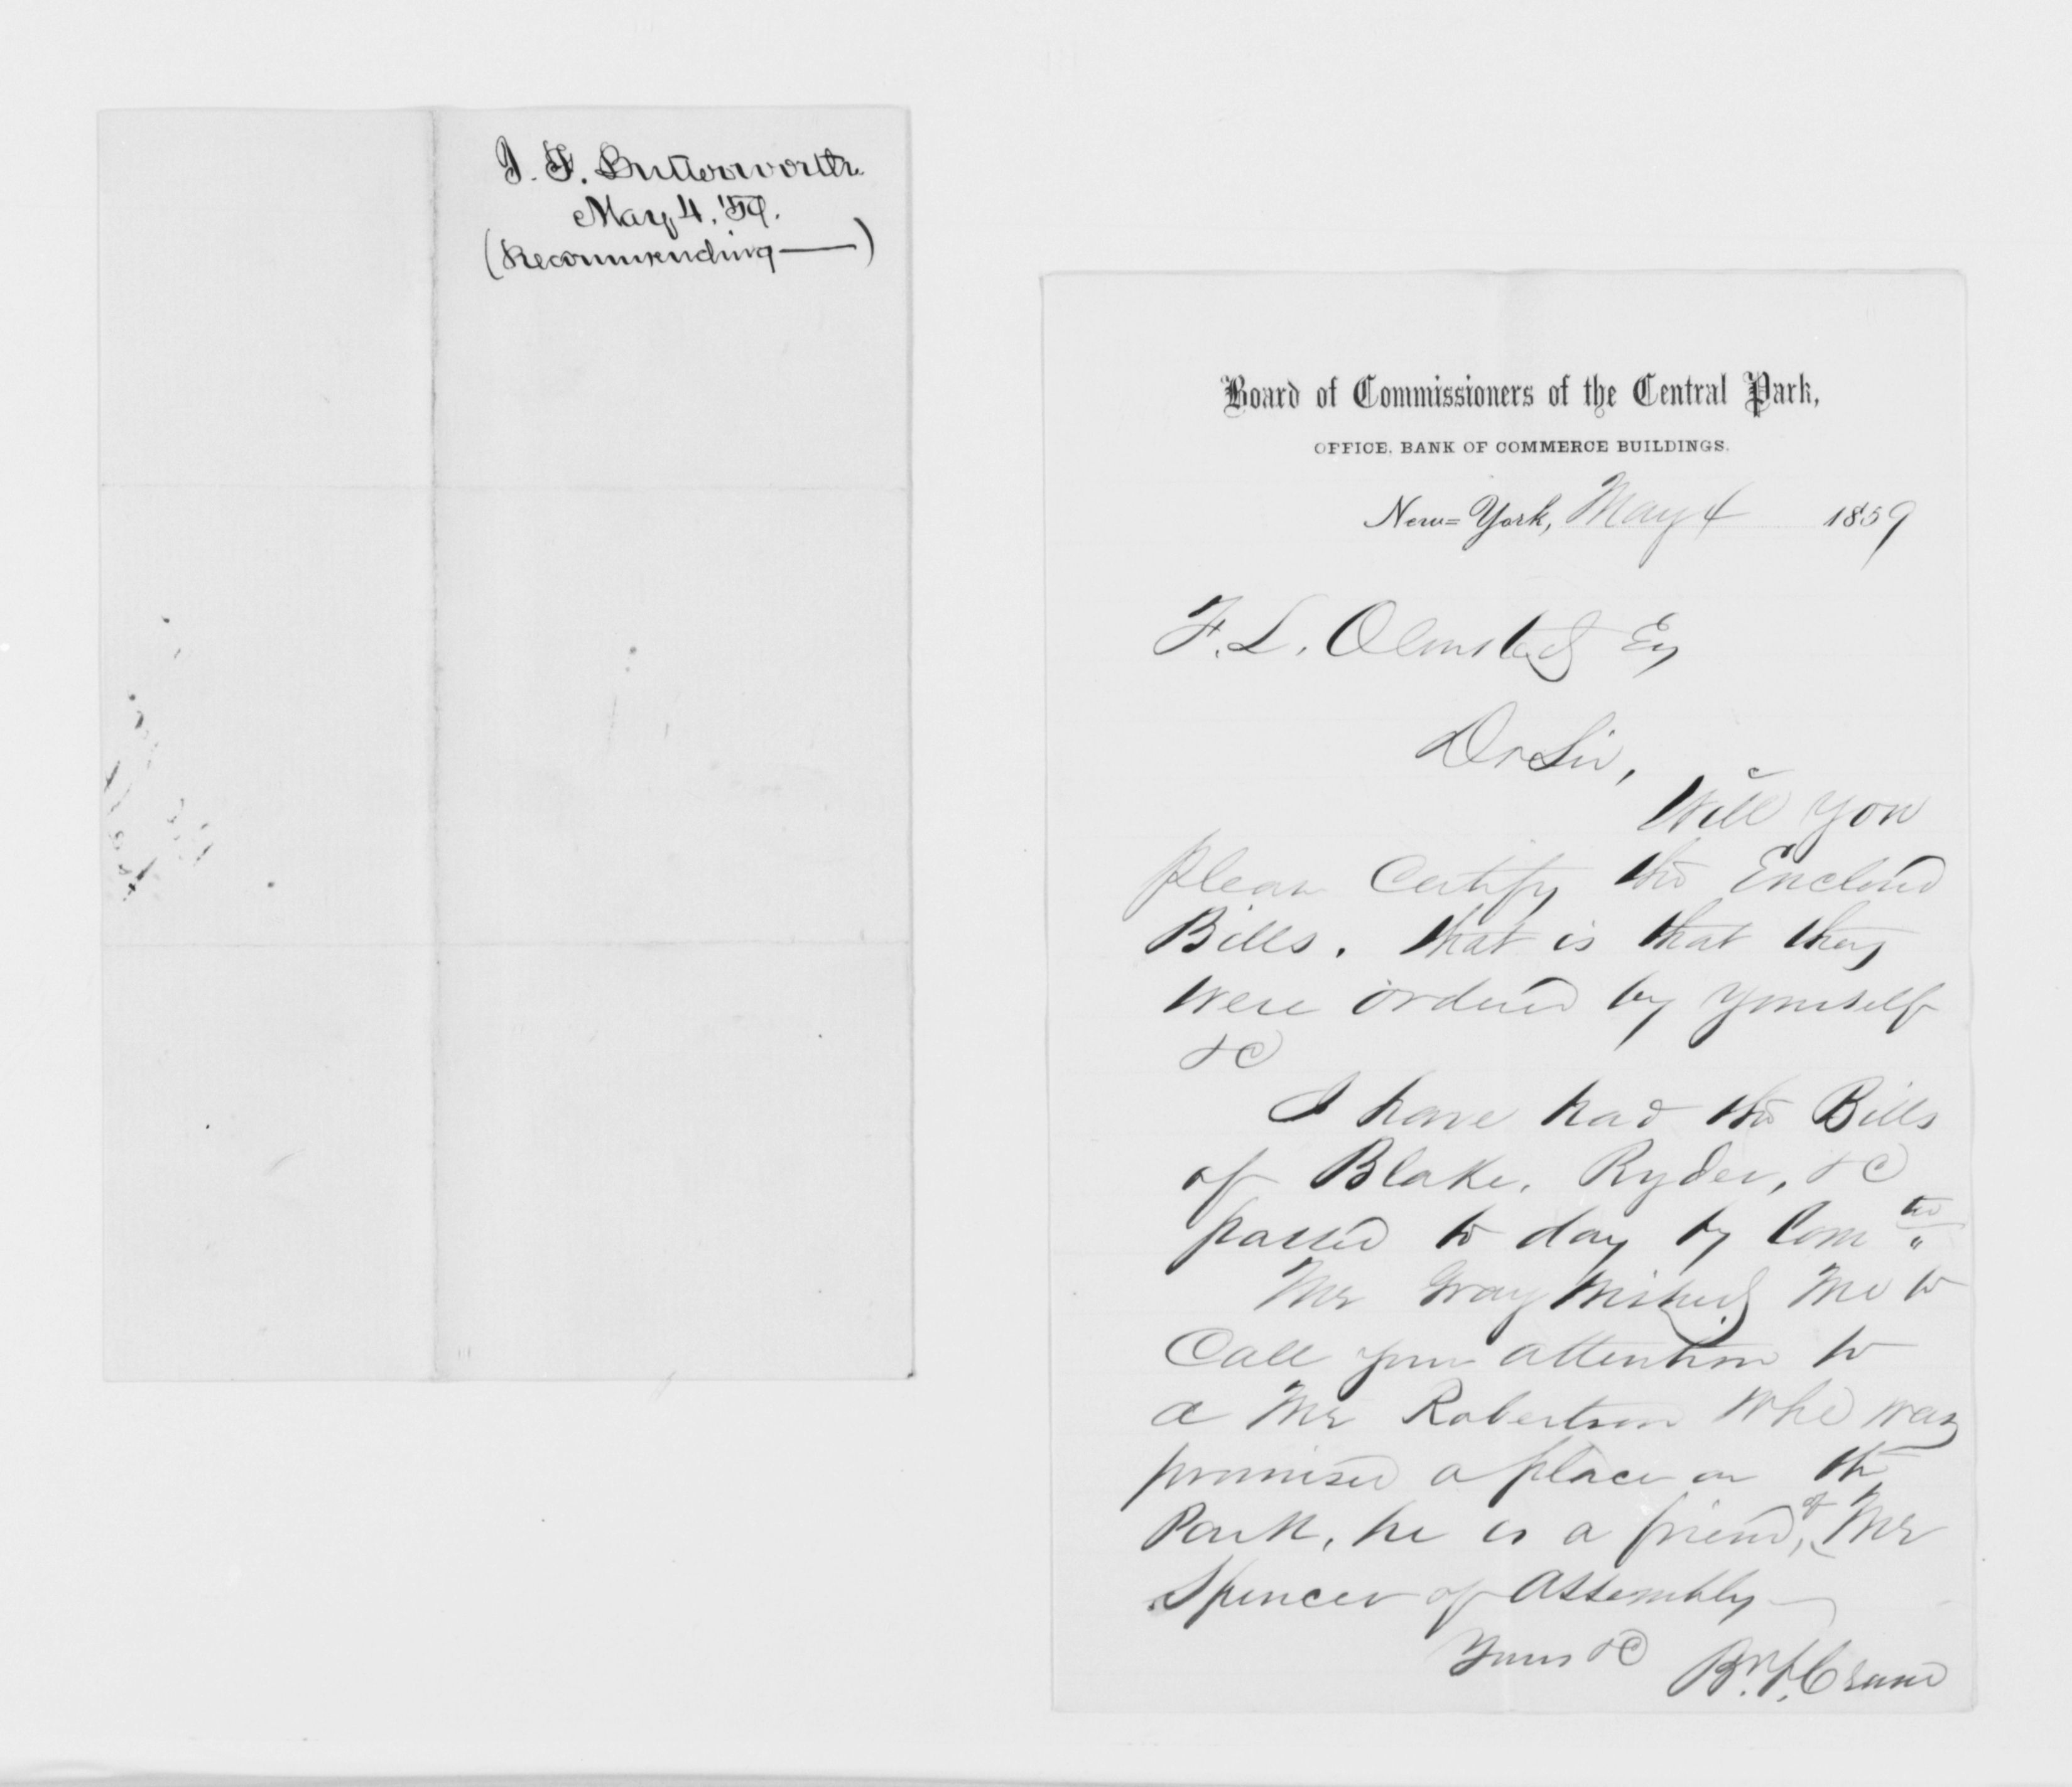 J. F. Butterworth.
May 4, '59.
(Recommending —)
Board of Commissioners of the Central Park,
OFFICE, BANK OF COMMERCE BUILDINGS.
New=York, May 4 1859
F. L. Olmsted Esq
Dr Sir,
Will you
please Certify the Enclosed
Bills. that is that they
were ordered by yourself
&C
I have had the Bills
of Blake, Ryder, &C
passed to day by Com tee
Mr Gray wished me to
Call your attention to
a Mr Robertson who was
promised a place on the
Park, he is a friend, of Mr
Spencer of Assembly
Yours &C
Crane